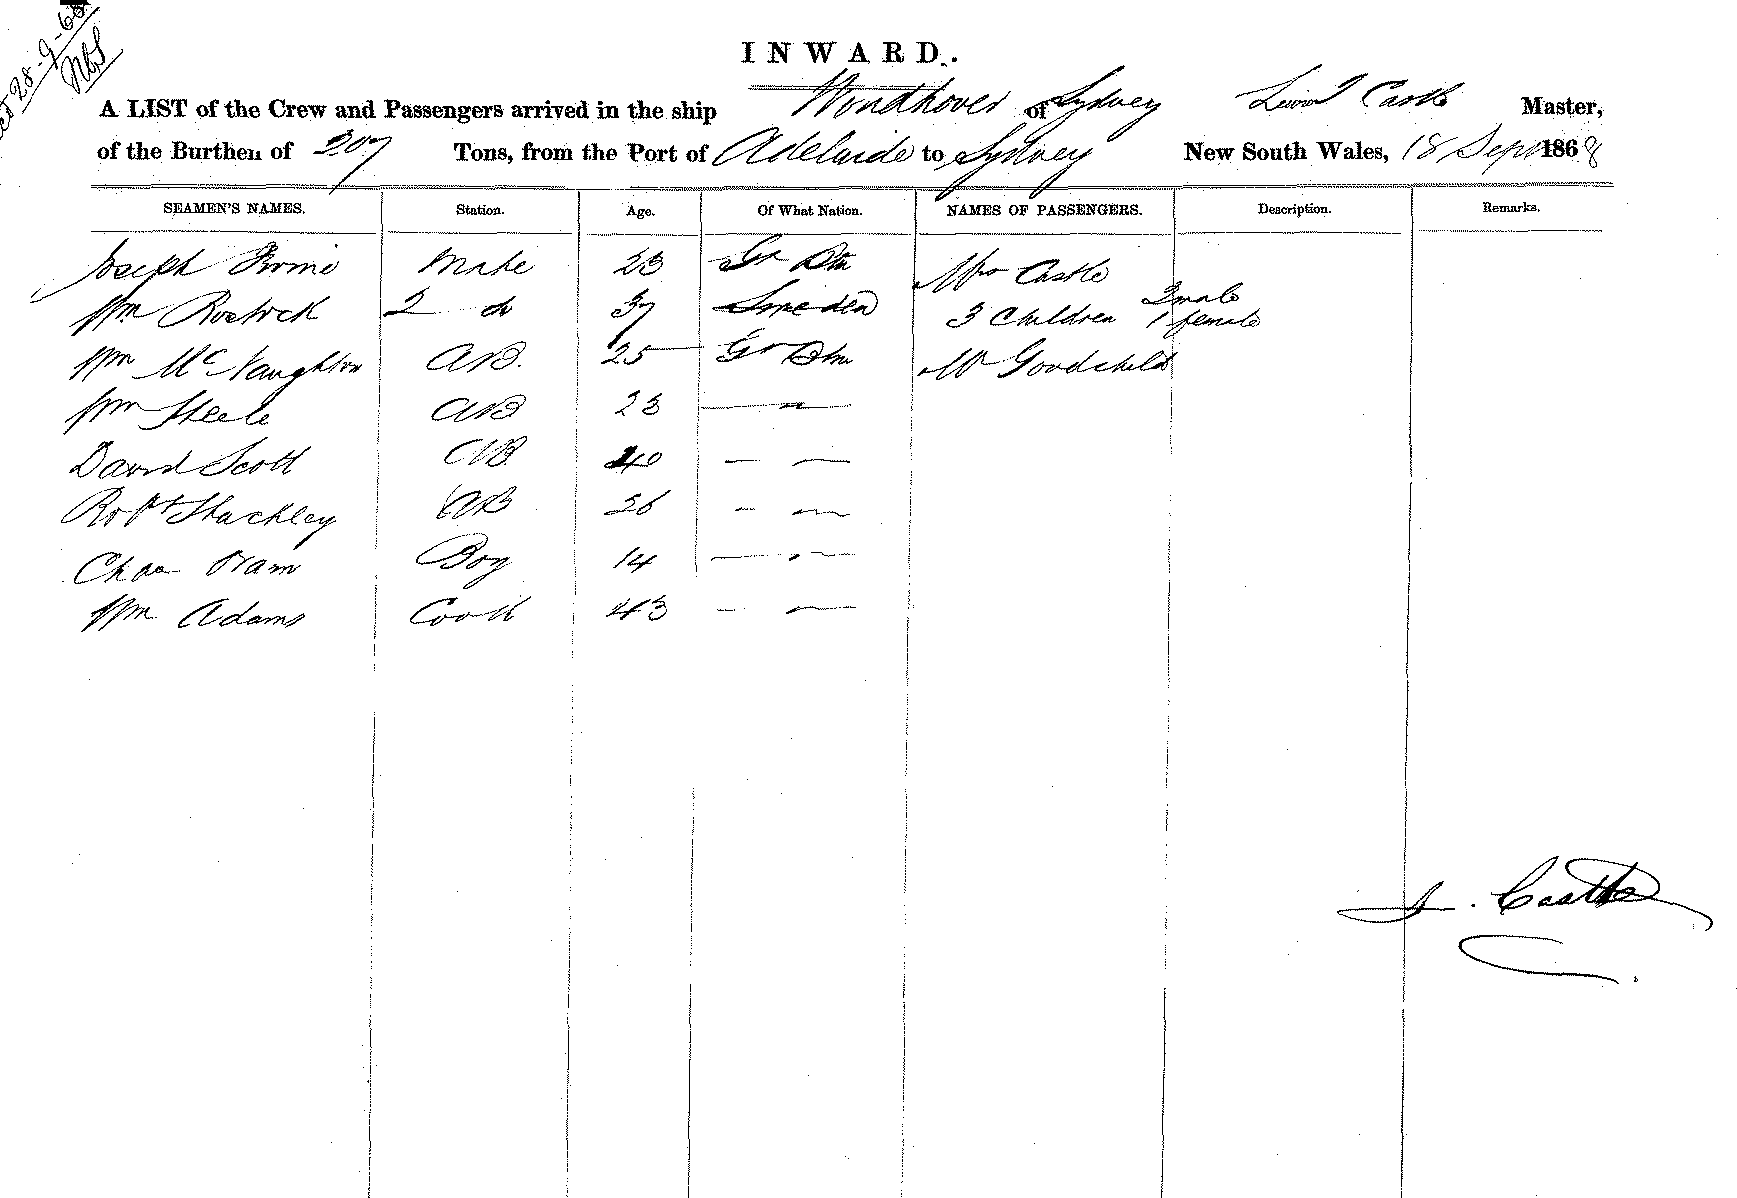 28-9-68
I N W A R D.
A LIST of the Crew and Passengers arrived in the ship Windhover of Sydney Castle Master,
of the Burthen of 207 Tons, from the Port of Adelaide to Sydney New South Wales, 18 Sept 1868
SEAMEN'S NAMES. Station. Age. Of What Nation. NAMES OF PASSENGERS. Description. Remarks.
Joseph Mate 23 Gt Btn Mrs Castle
Wm Rostock 2 do 37 Sweden 3 Children 2 male 1 female
Wm McNaughton AB. 25 Gt Btn Mr Goodchild
Wm Steele AB 23 — " —
David Scott AB 40 — —
Robt Shackley AB 26 — —
Chas Oram Boy 14 — " —
Wm Adams Cook 43 — —
Castle